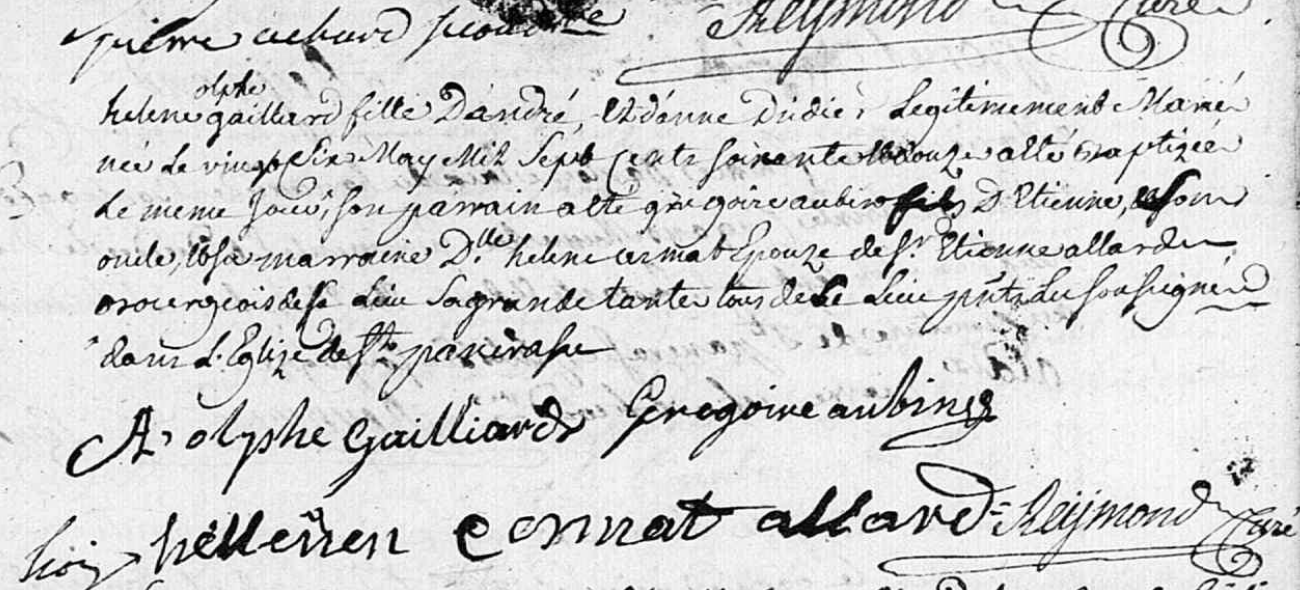 pierre achard Reymond Curé
olphe
helene gaillard fille D'andré, et d'anne Didier Legitimement Mariés
née Le vingt Six May Mil Sept Cents soixante et onze a été Baptizée
Le meme Jour, son parrain a été grégoire aubin fils D'Etienne, et son
oncle, et sa marraine D.lle helene ermat Epouze de Sr. Etienne allard
Bourgeois de Ce Lieu Sa grande tante tous de Ce Lieu pnts Les Soussignés
dans L'Eglize de St. pancrasse
A, olphe Gailliard Gregoire aubin
helleinen ermat allard = Reymond Curé